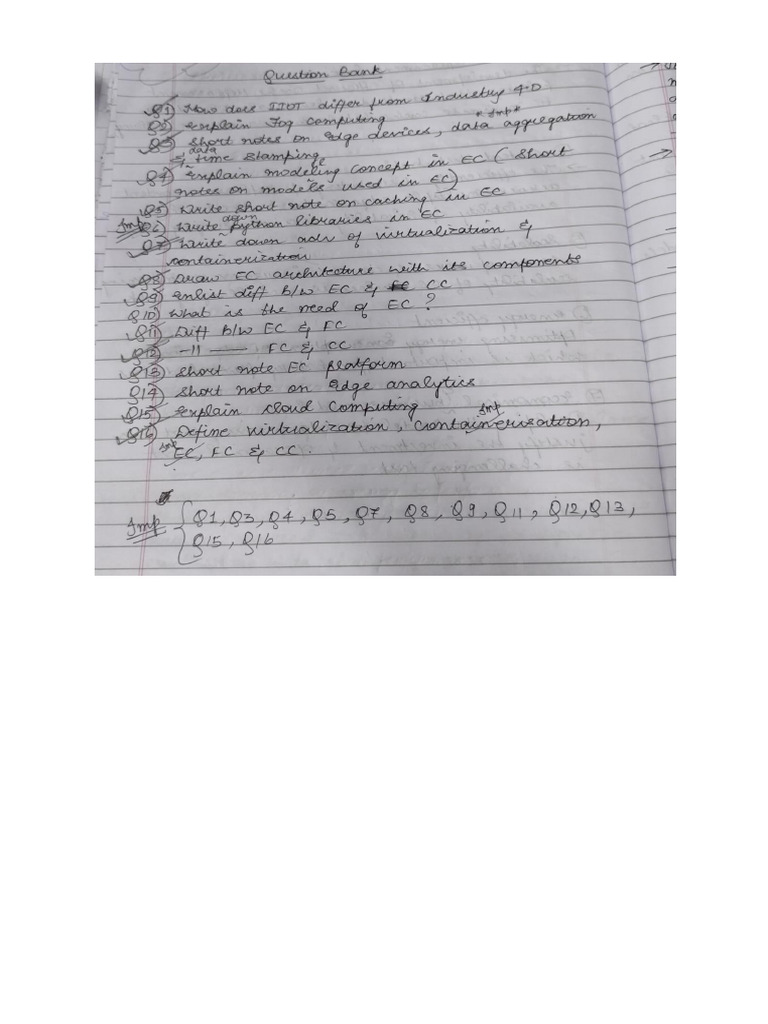 Question Bank
Q1) How does IIOT differ from Industry 4.0
Q2) Explain Fog Computing
*Imp*
Q3) Short notes on Edge devices, data aggregation
& data time stamping
Q4) Explain modeling concept in EC (Short
notes on models used in EC)
Q5) Write short note on caching in EC
Imp Q6) Write down python libraries in EC
Q7) Write down adv of virtualization &
containerization
Q8) Draw EC architecture with its components
Q9) Enlist diff b/w EC & CC
Q10) What is the need of EC?
Q11) Diff b/w EC & FC
Q12) -11- FC & CC
Q13) Short note EC platform
Q14) Short note on Edge analytics
Q15) Explain cloud Computing
Imp
Q16) Define virtualization, Containerisation,
Imp EC, FC & CC.
Imp { Q1, Q3, Q4, Q5, Q7, Q8, Q9, Q11, Q12, Q13,
Q15, Q16